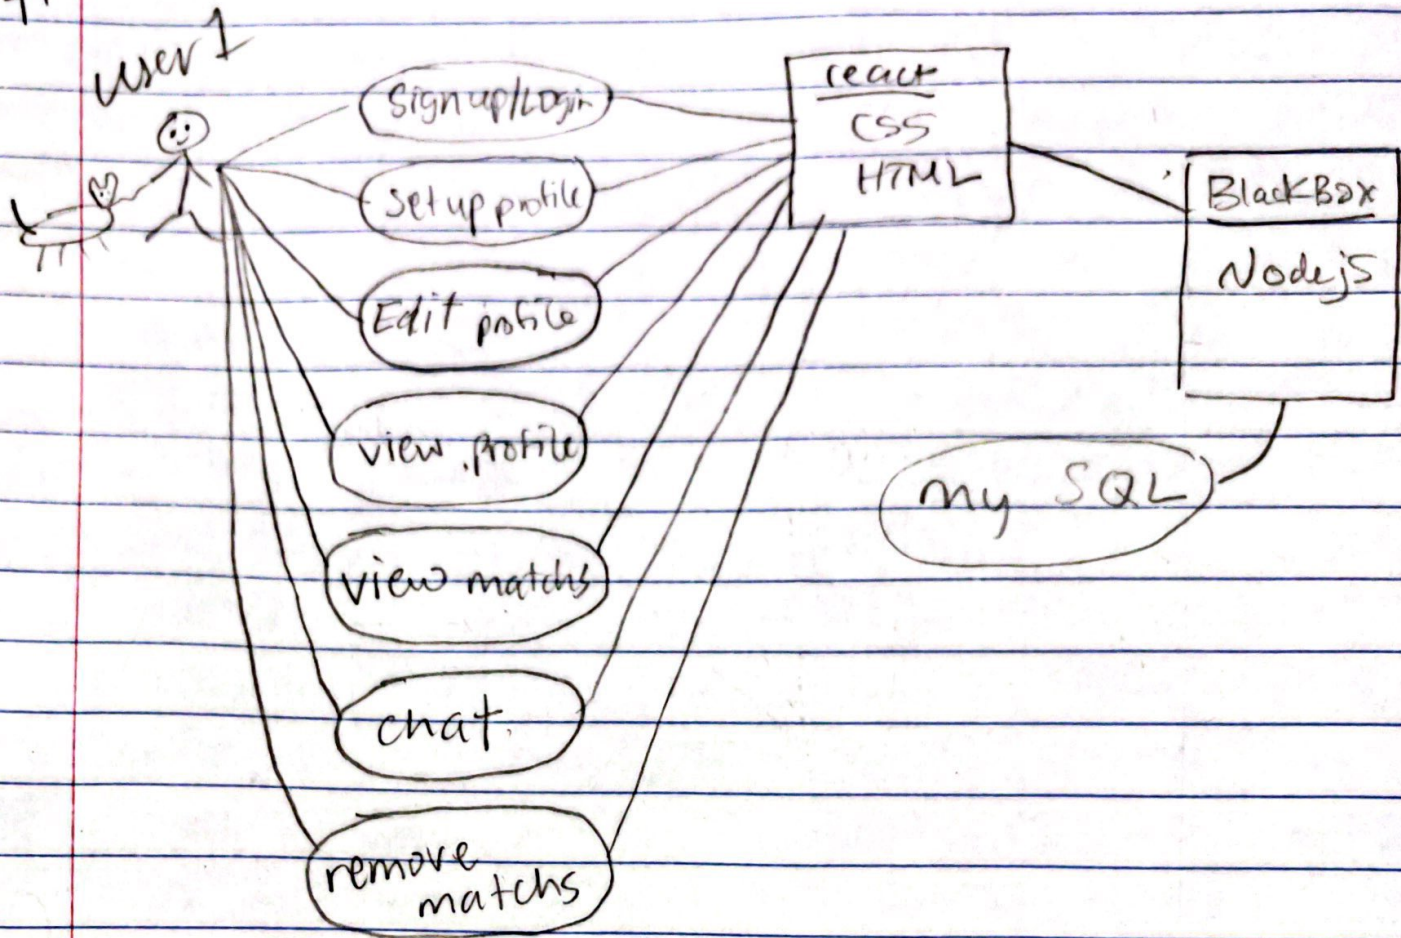 user 1
Sign up/Login
Setup profile
Edit profile
view profile
view matchs
chat
remove
matchs
react
CSS
HTML
BlackBox
Nodejs
my SQL